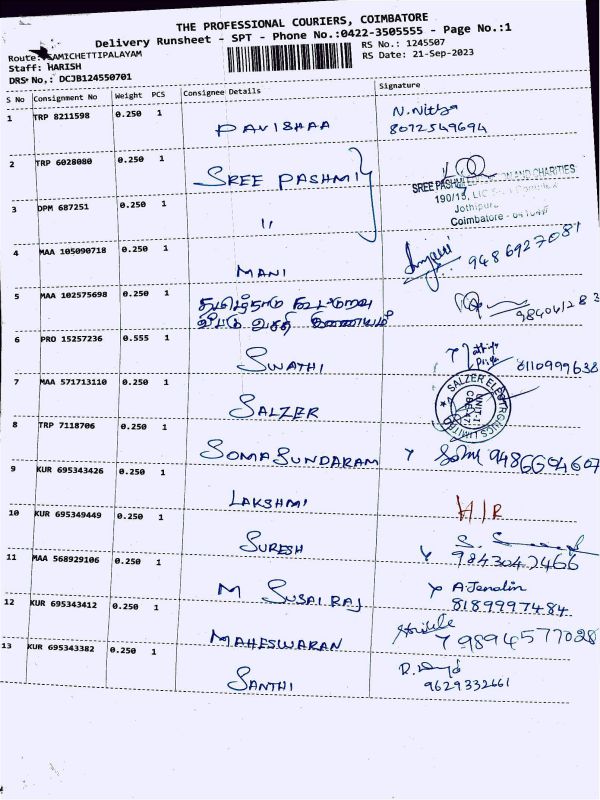 THE PROFESSIONAL COURIERS, COIMBATORE
Delivery Runsheet - SPT - Phone No.:0422-3505555 - Page No.:1
Route: SAMICHETTIPALAYAM
RS No.: 1245507
Staff: HARISH
RS Date: 21-Sep-2023
DRS No.: DCJB124550701
S No Consignment No Weight PCS Consignee Details Signature
1 TRP 8211598 0.250 1 PAVISHAA N.Nithya
8072549694
2 TRP 6028080 0.250 1 SREE PASHMI
SREE PASHMI AND CHARITIES
190/15, LIC
Jothipuram
Coimbatore - 641047
3 DPM 687251 0.250 1 "
4 MAA 105090718 0.250 1 MANI 9486927081
5 MAA 102575698 0.250 1 தமிழ்நாடு கூட்டுறவு
வீட்டு வசதி இணையம்
984041283
6 PRO 15257236 0.555 1 SWATHI 8110999638
7 MAA 571713110 0.250 1 SALZER
SALZER ELECTRONICS LIMITED
UNIT-II
CBE-47
8 TRP 7118706 0.250 1 SOMASUNDARAM 9486604607
9 KUR 695343426 0.250 1 LAKSHMI H/R
10 KUR 695349449 0.250 1 SURESH
9843042466
11 MAA 568929106 0.250 1 M SUSAIRAJ A.Jenalin
8189997484
12 KUR 695343412 0.250 1 MAHESWARAN
9894577028
13 KUR 695343382 0.250 1 SANTHI
9629332661